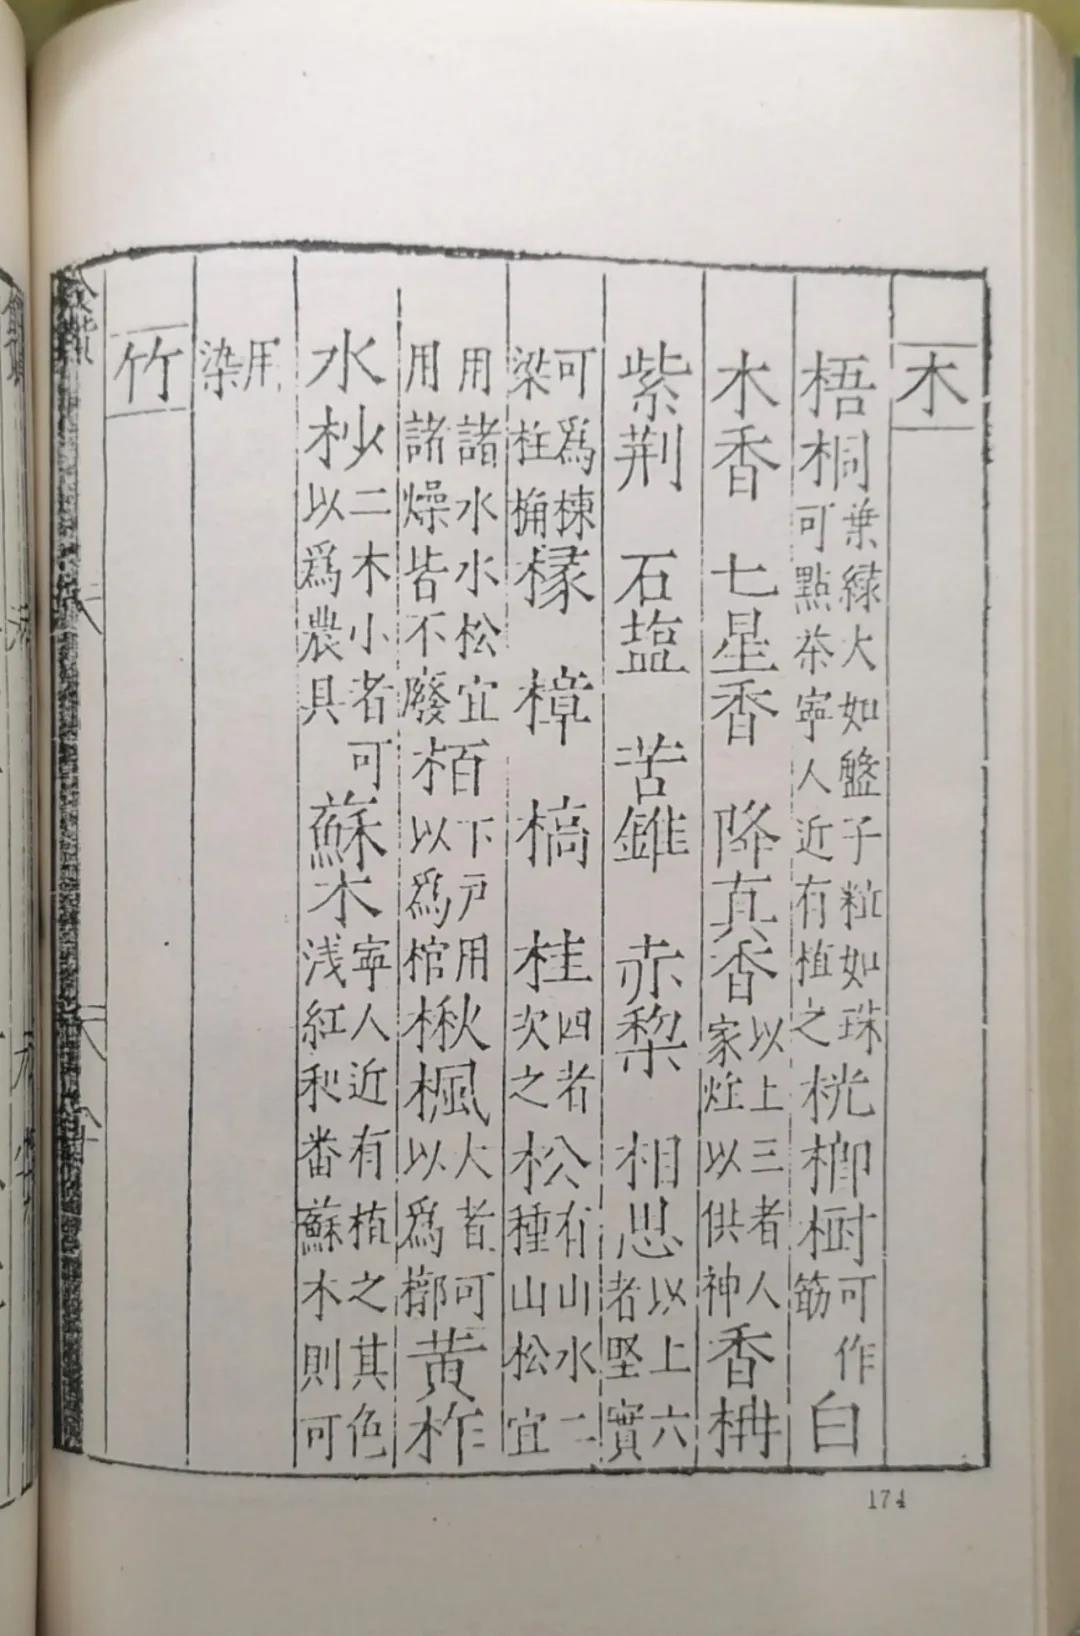 木
梧桐葉綠大如盤子粒如珠可點茶寧人近有植之桄榔樹可作筯白
木香 七星香 降真香以上三者人家炷以供神香柟
紫荆 石塩 苦錐 赤棃 相思以上六者堅實
可爲棟梁柱桷椽 樟 槁 桂四者次之松有山水二種山松宜
用諸水水松宜用諸燥皆不廢栢下戸用以爲棺楸楓大者可以爲槨黄柞
水杪二木小者可以爲農具蘇木寧人近有植之其色浅紅和番蘇木則可
用染
竹
174